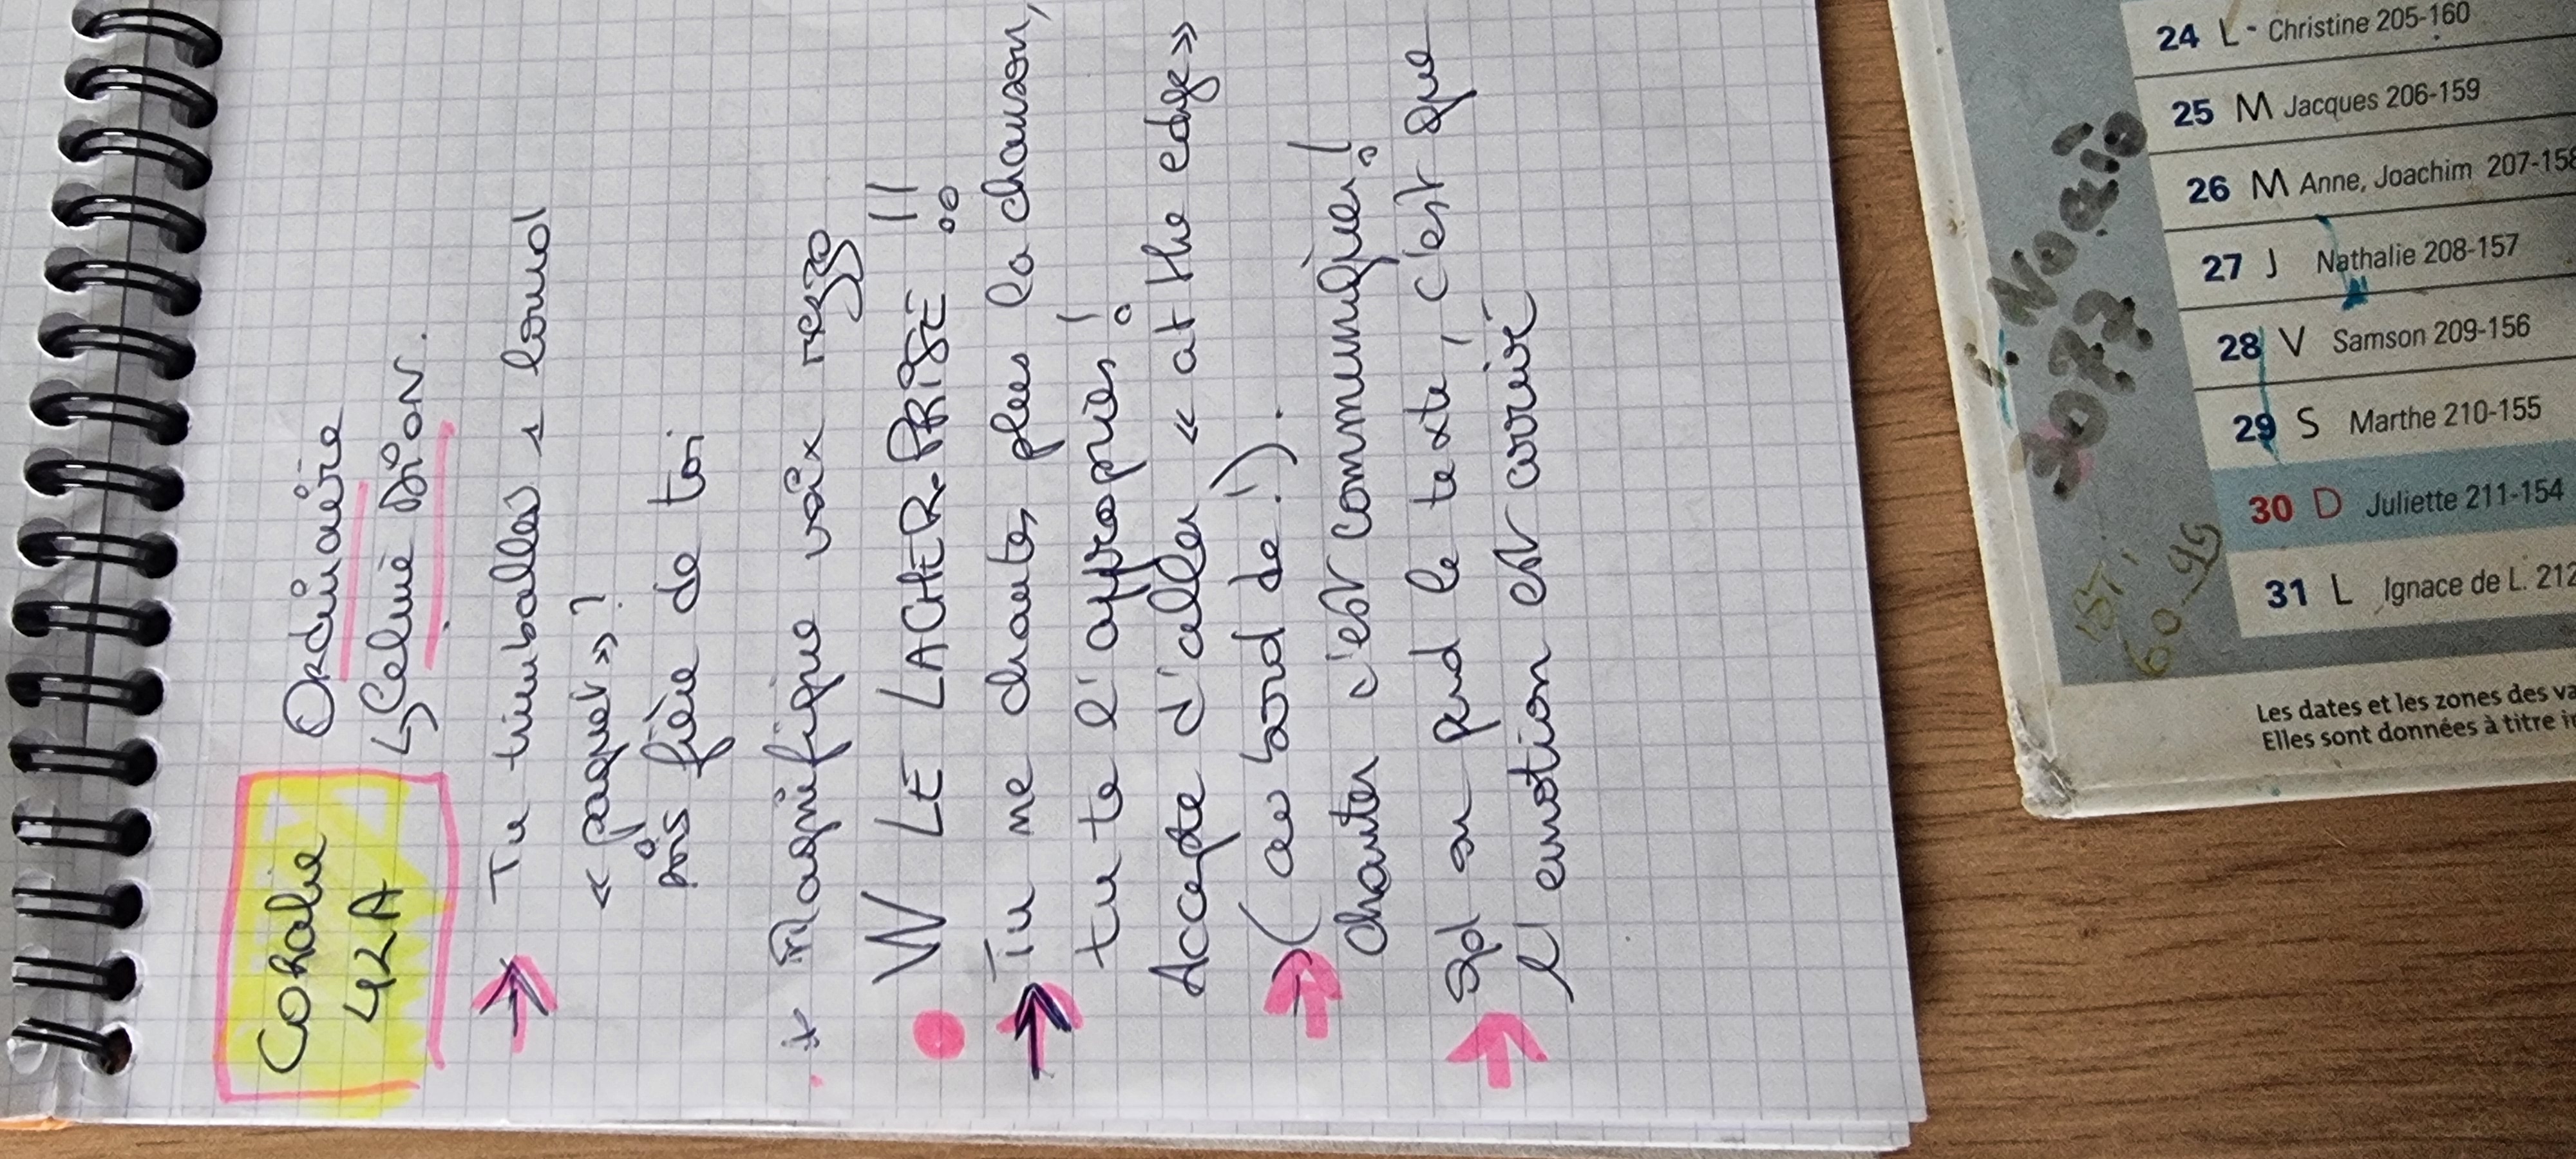 Coralie
42A
Ordinaire
↳ Celine Dion.
→ Tu trimballes 1 lourd
« paquet » ?
sois fière de toi
* Magnifique voix
W LE LACHER. PRISE !!
→ Tu me chantes plus la chanson,
tu te l'appropries !
Accepte d'aller « at the edge »
→ (au bord de !).
chanter c'est communiquer !
→ Spl on perd le texte, c'est que
l'emotion est arrivé
24 L - Christine 205-160
25 M Jacques 206-159
26 M Anne, Joachim 207-158
27 J Nathalie 208-157
28 V Samson 209-156
29 S Marthe 210-155
30 D Juliette 211-154
31 L Ignace de L. 212
Les dates et les zones des va
Elles sont données à titre in